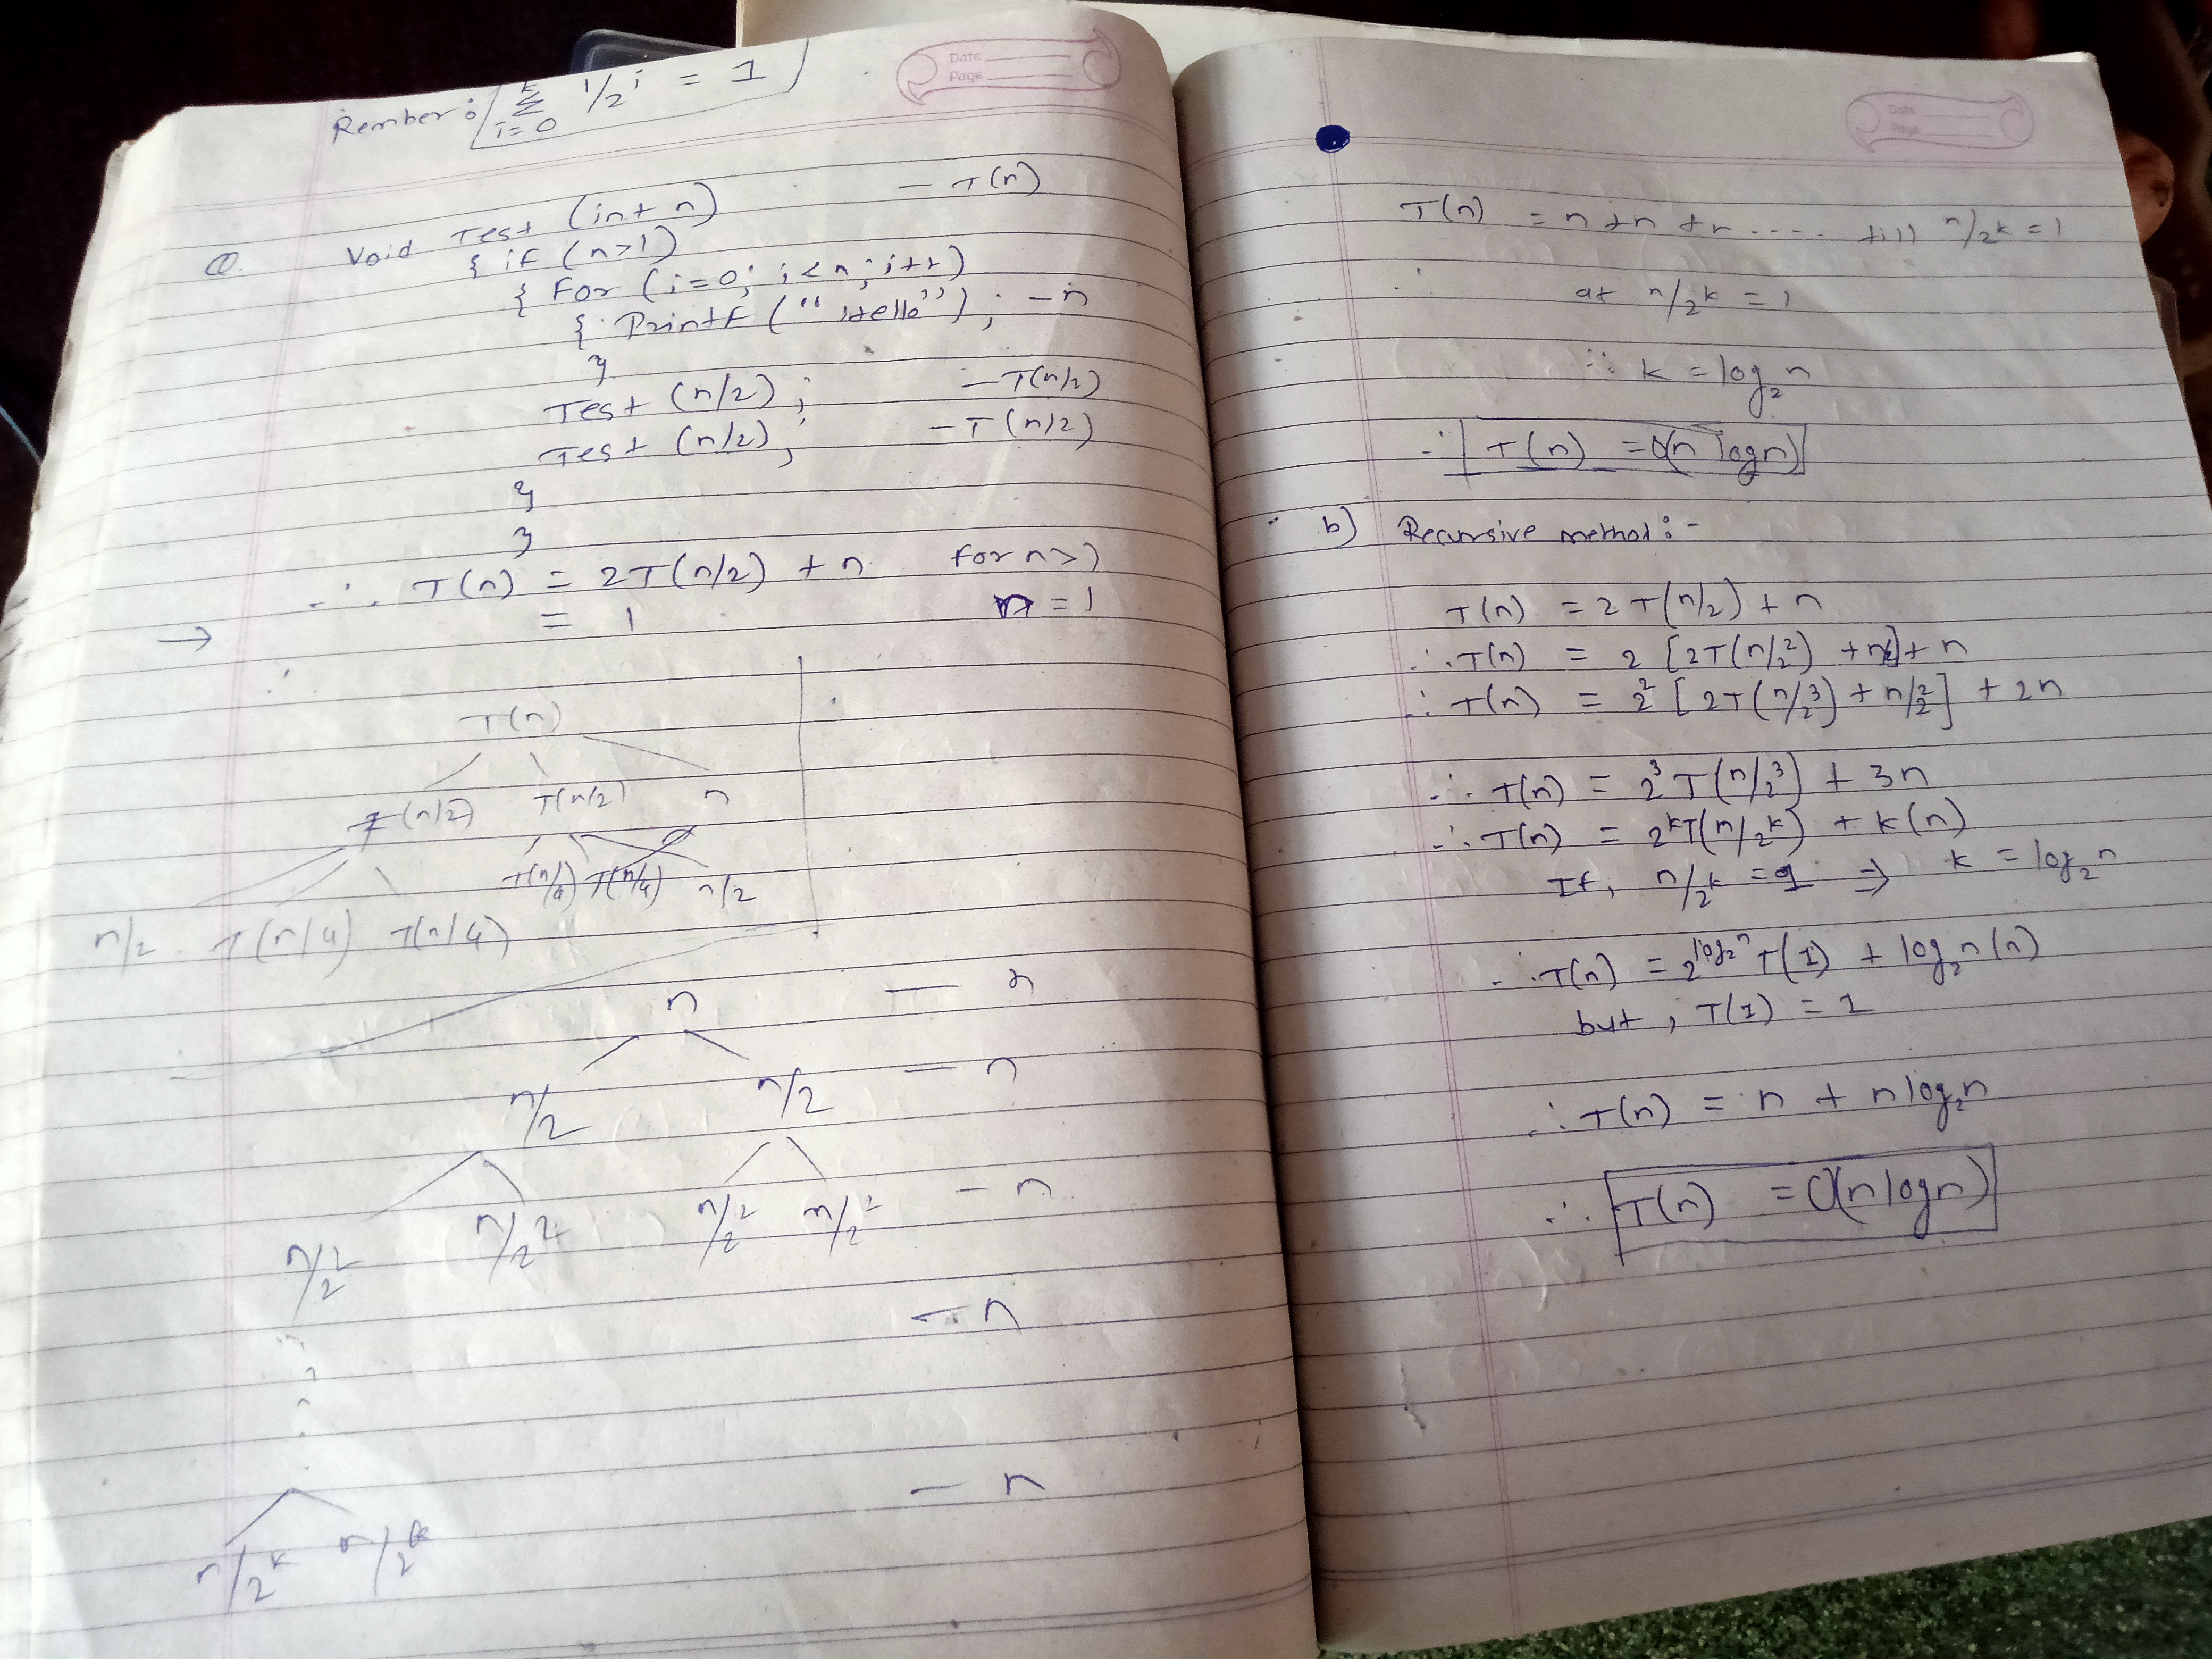 Date
Page
Rember: k Σ i=0 1/2i = 1
Q. Void Test (int n) — T(n)
{ if (n>1)
{ For (i=0; i<n; i++)
{ Printf ("Hello"); — n
}
Test (n/2); — T(n/2)
Test (n/2); — T(n/2)
}
}
∴ T(n) = 2T(n/2) + n for n>1
→ = 1 n = 1
T(n)
T(n/2) T(n/2) n
T(n/4) T(n/4) n/2
n/2 T(n/4) T(n/4)
n — n
n/2 n/2 — n
n/2² n/2² n/2² n/2² — n
— n
n/2ᵏ n/2ᵏ — n
Date
Page
T(n) = n+n+n.... till n/2ᵏ = 1
at n/2ᵏ = 1
∴ k = log₂n
∴ T(n) = O(n logn)
b) Recursive method:-
T(n) = 2T(n/2) + n
∴ T(n) = 2 [2T(n/2²) + n/2] + n
∴ T(n) = 2² [2T(n/2³) + n/2²] + 2n
∴ T(n) = 2³T(n/2³) + 3n
∴ T(n) = 2ᵏT(n/2ᵏ) + k(n)
If, n/2ᵏ = 1 ⇒ k = log₂n
∴ T(n) = 2^log₂n T(1) + log₂n(n)
but, T(1) = 1
∴ T(n) = n + nlog₂n
∴ T(n) = O(nlogn)